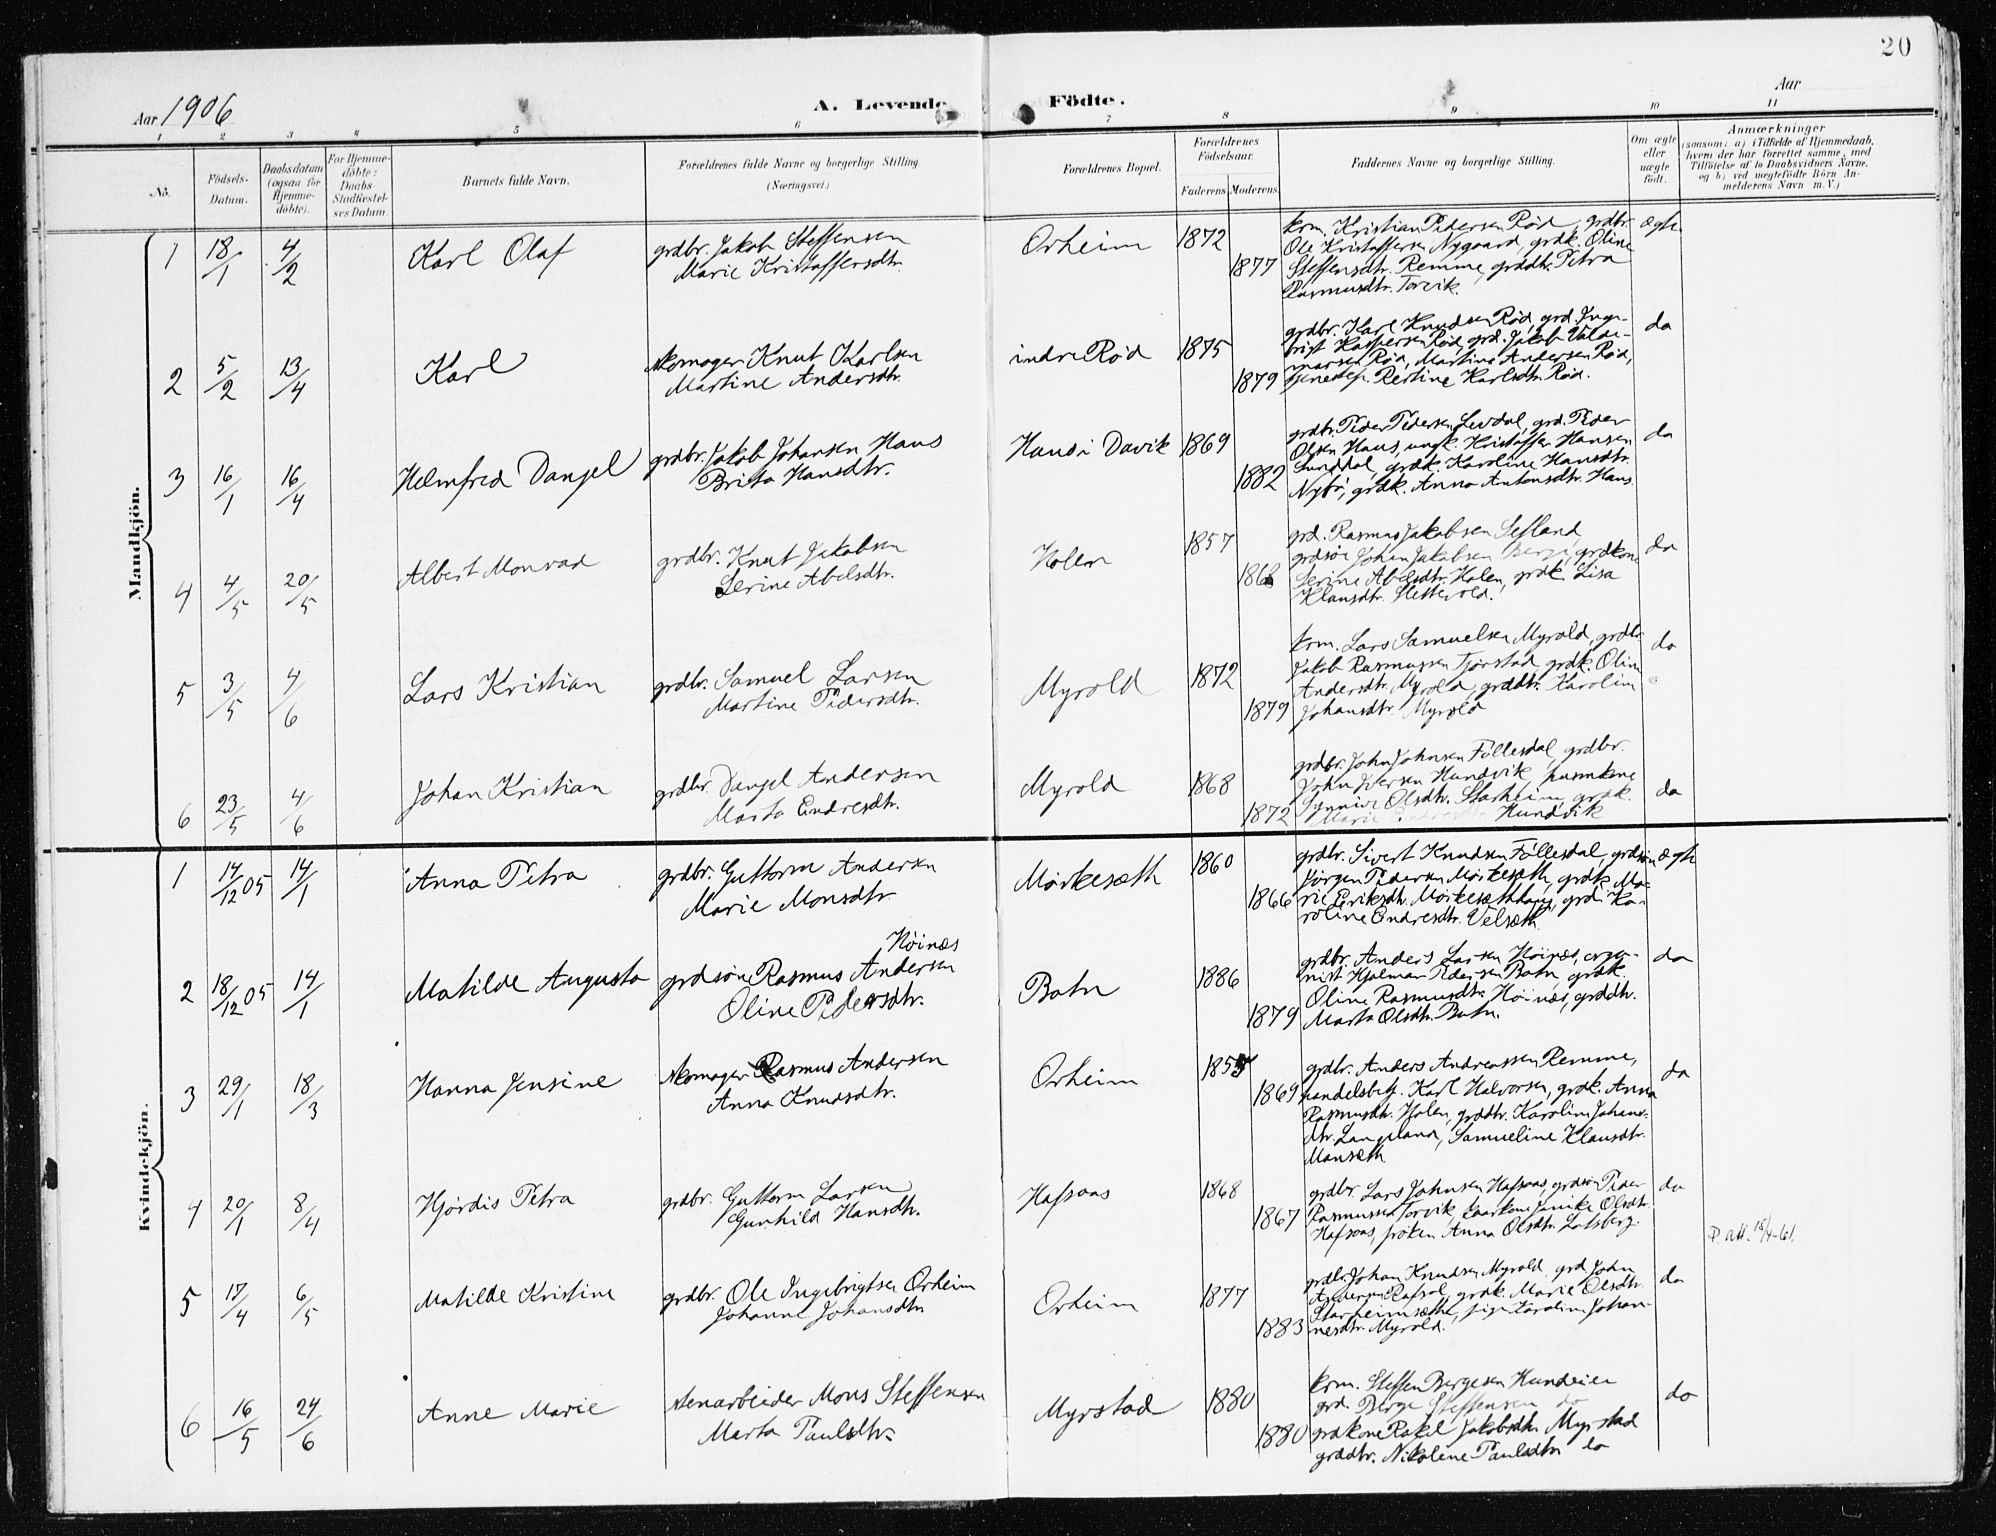 20
Aar 1906
A. Levende Födte.
Aar
1 2 3 4 5 6 7 8 9 10 11
No.
Födsels-Datum.
Daabsdatum (ogsaa for Hjemme-döbte).
For Hjemme-döbte: Daabs-Stadfæstel-ses Datum.
Barnets fulde Navn.
Forældrenes fulde Navne og borgerlige Stilling
(Næringsvei.)
Forældrenes Bopæl.
Forældrenes Födselsaar.
Faderens Moderens
Faddernes Navne og borgerlige Stilling.
Om ægte eller uægte født.
Anmærkninger
(saasom: a) i Tilfælde af Hjemmedaab,
hvem der har forrettet samme, med
Tilföielse af to Daabsvidners Navne,
og b) ved uægtefödte Börn An-
melderens Navn m. V.)
Mandkjön.
1 18/1 4/2 Karl Olaf
grdbr. Jakob Steffensen
Marie Kristoffersdtr.
Orheim 1872 1877
krm. Kristian Pedersen Rød, grdbr.
Ole Kristoffersen Nygaard, grdk. Oline
Steffensdtr. Remme, grddtr. Petra
Rasmusdtr. Torvik.
ægte
2 5/2 13/4 Karl
skomager Knut Karlsen
Martine Andersdtr.
indre Rød 1875 1879
grdbr. Karl Knudsen Rød, grd. Inge-
brigt Kaspersen Rød, grd. Jakob Valde-
marsen Rød, Martine Andersen Rød,
tjenestep. Pertine Karlsdtr. Rød.
do
3 16/1 16/4 Helmfred Danjel
grdbr. Jakob Johansen Haus
Brita Hansdtr.
Haus i Davik 1869 1882
grdbr. Peder Pedersen Levdal, grd. Peder
Olsen Haus, ungk. Kristoffer Hansen
Lunddal, grdk. Karoline Hansdtr.
Nybö, grdk. Anna Antonsdtr. Haus
do
4 4/5 20/5 Albert Monrad
grdbr. Knut Jakobsen
Serine Abelsdtr.
Holen 1857
grd. Rasmus Jakobsen Sefland
grdsøn Johan Jakobsen Berge, grdkone
Serine Abelsdtr. Holen, grdk. Lisa
Klausdtr. Slettevold.
do
5 3/5 4/6 Lars Kristian
grdbr. Samuel Larsen
Martine Pedersdtr.
Myrold 1872 1879
krm. Lars Samuelsen Myrold, grdbr.
Jakob Rasmussen Tjørstad, grdk. Oline
Andersdtr. Myrold, grddtr. Karoline
Johansdtr. Myrold
do
6 23/5 4/6 Johan Kristian
grdbr. Danjel Andersen
Marta Endresdtr.
Myrold 1868 1872
grdbr. John Johnsen Föllesdal, grdbr.
John Iversen Hundvik, husmkone
Synnive Olsdtr. Starheim, grdk.
Marie Endresdtr. Hundvik
do
Kvindekjön.
1 14/12 05 14/1 Anna Petra
grdbr. Guttorm Andersen
Marie Monsdtr.
Mörkesæth 1860 1866
grdbr. Sivert Knudsen Föllesdal, grdsøn
Jörgen Pedersen Mörkesæth, grdk. Ma-
rie Eriksdtr. Mörkesæthhaug, grd. Ka-
roline Endresdtr. Velsæth
ægte
2 18/12 05 14/1 Matilde Augusta
Höinæs
grdsøn Rasmus Andersen
Oline Pedersdtr.
Botn 1886 1879
grdbr. Anders Larsen Höinæs, orga-
nist Hjalmar Pedersen Botn, grdk.
Oline Rasmusdtr. Höinæs, grddtr.
Marta Olsdtr. Botn.
do
3 29/1 18/3 Hanna Jensine
skomager Rasmus Andersen
Anna Knudsdtr.
Orheim 1869
grdbr. Anders Andreassen Remme,
handelsbetj. Karl Halvorsen, grdk. Anna
Rasmusdtr. Holen, grddtr. Karoline Johans-
dtr. Langeland, Samueline Klausdtr.
Monsæth
do
4 20/1 8/4 Hjördis Petra
grdbr. Guttorm Larsen
Gunhild Hansdtr.
Hafsaas 1868 1867
grdbr. Lars Johnsen Hafsaas, grdsøn Peder
Rasmussen Torvik, kaarkone Jenike Olsdtr.
Hafsaas, fröken Anna Olsdtr. Lotsberg.
do
D. att. 15/4-61.
5 17/4 6/5 Matilde Kristine
grdbr. Ole Ingebrigtsen Orheim
Johanne Johansdtr
Orheim 1877 1883
grdbr. Johan Knudsen Myrold, grd. John
Andersen Rafsol, grdk. Marie Olsdtr.
Starheimsæther, pige Karoline Johan-
nesdtr. Myrold.
do
6 16/5 24/6 Anne Marie
stenarbeider Mons Steffensen
Marta Paulsdtr.
Myrstad 1880 1880
krm. Steffen Bergesen Hundeier
grd. Berge Steffensen do
grdkone Rakel Jakobsdtr. Myrstad
grddtr. Nikoline Paulsdtr do
do